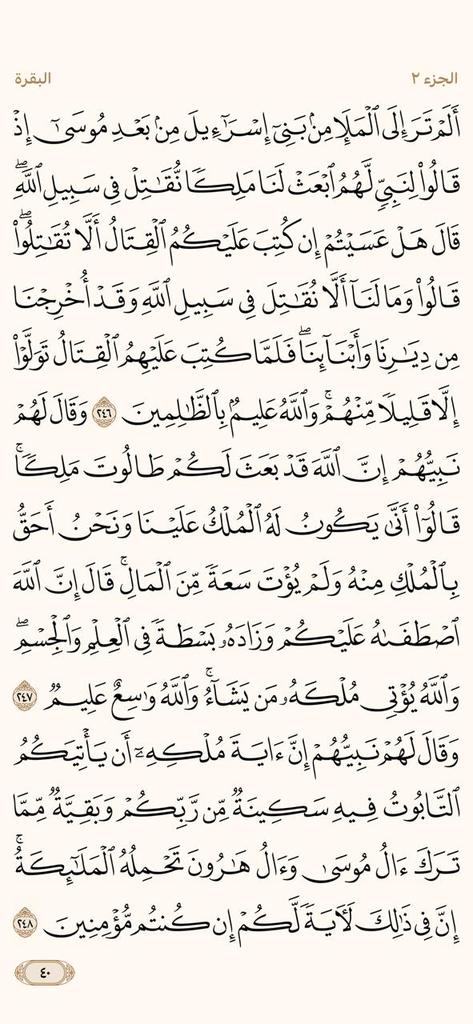 الجزء ٢
البقرة
أَلَمْ تَرَ إِلَى ٱلْمَلَإِ مِنۢ بَنِىٓ إِسْرَٰٓءِيلَ مِنۢ بَعْدِ مُوسَىٰٓ إِذْ
قَالُوا۟ لِنَبِىٍّ لَّهُمُ ٱبْعَثْ لَنَا مَلِكًا نُّقَـٰتِلْ فِى سَبِيلِ ٱللَّهِ ۖ
قَالَ هَلْ عَسَيْتُمْ إِن كُتِبَ عَلَيْكُمُ ٱلْقِتَالُ أَلَّا تُقَـٰتِلُوا۟ ۖ
قَالُوا۟ وَمَا لَنَآ أَلَّا نُقَـٰتِلَ فِى سَبِيلِ ٱللَّهِ وَقَدْ أُخْرِجْنَا
مِن دِيَـٰرِنَا وَأَبْنَآئِنَا ۖ فَلَمَّا كُتِبَ عَلَيْهِمُ ٱلْقِتَالُ تَوَلَّوْا۟
إِلَّا قَلِيلًا مِّنْهُمْ ۗ وَٱللَّهُ عَلِيمٌۢ بِٱلظَّـٰلِمِينَ ٢٤٦ وَقَالَ لَهُمْ
نَبِيُّهُمْ إِنَّ ٱللَّهَ قَدْ بَعَثَ لَكُمْ طَالُوتَ مَلِكًا ۚ
قَالُوٓا۟ أَنَّىٰ يَكُونُ لَهُ ٱلْمُلْكُ عَلَيْنَا وَنَحْنُ أَحَقُّ
بِٱلْمُلْكِ مِنْهُ وَلَمْ يُؤْتَ سَعَةً مِّنَ ٱلْمَالِ ۚ قَالَ إِنَّ ٱللَّهَ
ٱصْطَفَىٰهُ عَلَيْكُمْ وَزَادَهُۥ بَسْطَةً فِى ٱلْعِلْمِ وَٱلْجِسْمِ ۖ
وَٱللَّهُ يُؤْتِى مُلْكَهُۥ مَن يَشَآءُ ۚ وَٱللَّهُ وَٰسِعٌ عَلِيمٌ ٢٤٧
وَقَالَ لَهُمْ نَبِيُّهُمْ إِنَّ ءَايَةَ مُلْكِهِۦٓ أَن يَأْتِيَكُمُ
ٱلتَّابُوتُ فِيهِ سَكِينَةٌ مِّن رَّبِّكُمْ وَبَقِيَّةٌ مِّمَّا
تَرَكَ ءَالُ مُوسَىٰ وَءَالُ هَـٰرُونَ تَحْمِلُهُ ٱلْمَلَـٰٓئِكَةُ ۚ
إِنَّ فِى ذَٰلِكَ لَـَٔايَةً لَّكُمْ إِن كُنتُم مُّؤْمِنِينَ ٢٤٨
٤٠